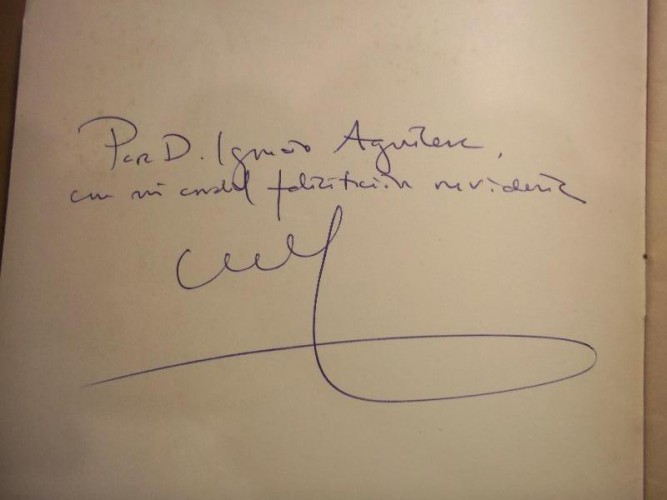 Para D. Ignacio Aguilera,
con mi cordial felicitación navideña